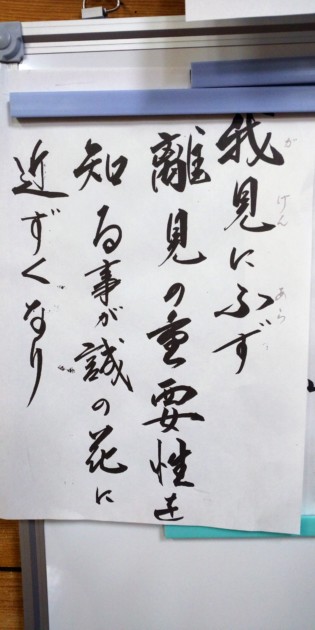 が げん あら
我見に不ず
離見の重要性を
知る事が誠の花に
近ずくなり